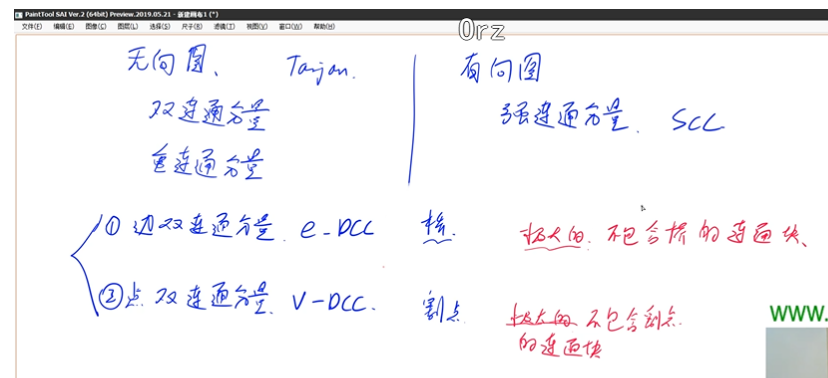 PaintTool SAI Ver.2 (64bit) Preview.2019.05.21 - 新建画布1 (*)
文件(F) 编辑(E) 图像(C) 图层(L) 选择(S) 尺子(R) 滤镜(T) 视图(V) 窗口(W) 帮助(H)
Orz
无向图、 Tarjan.
有向图
双连通分量
强连通分量. SCC
重连通分量
① 边双连通分量. e-DCC 桥.
极大的. 不包含桥的连通块、
② 点双连通分量. V-DCC. 割点
极大的 不包含割点.
的连通块
WWW.